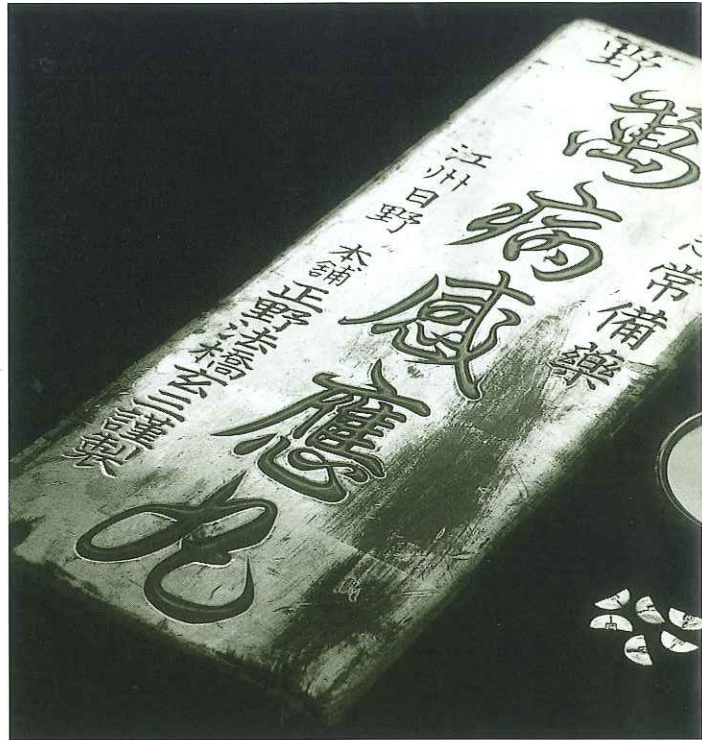 常備藥
野
萬病感應丸
江州日野 本舖 正野法橋玄三謹製